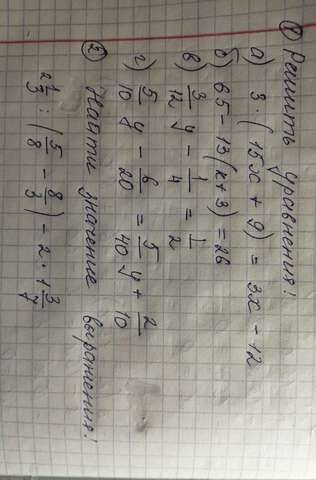 ① Решить уравнения!
а) 3 · (15x + 9) = 3x - 12
б) 65 - 13(x + 3) = 26
в) 3/12 y - 1/4 = 1/2
г) 5/10 y - 6/20 = 5/40 y + 2/10
② Найти значение выражения!
2 1/3 : (5/8 - 8/3) - 2 · 1 3/7